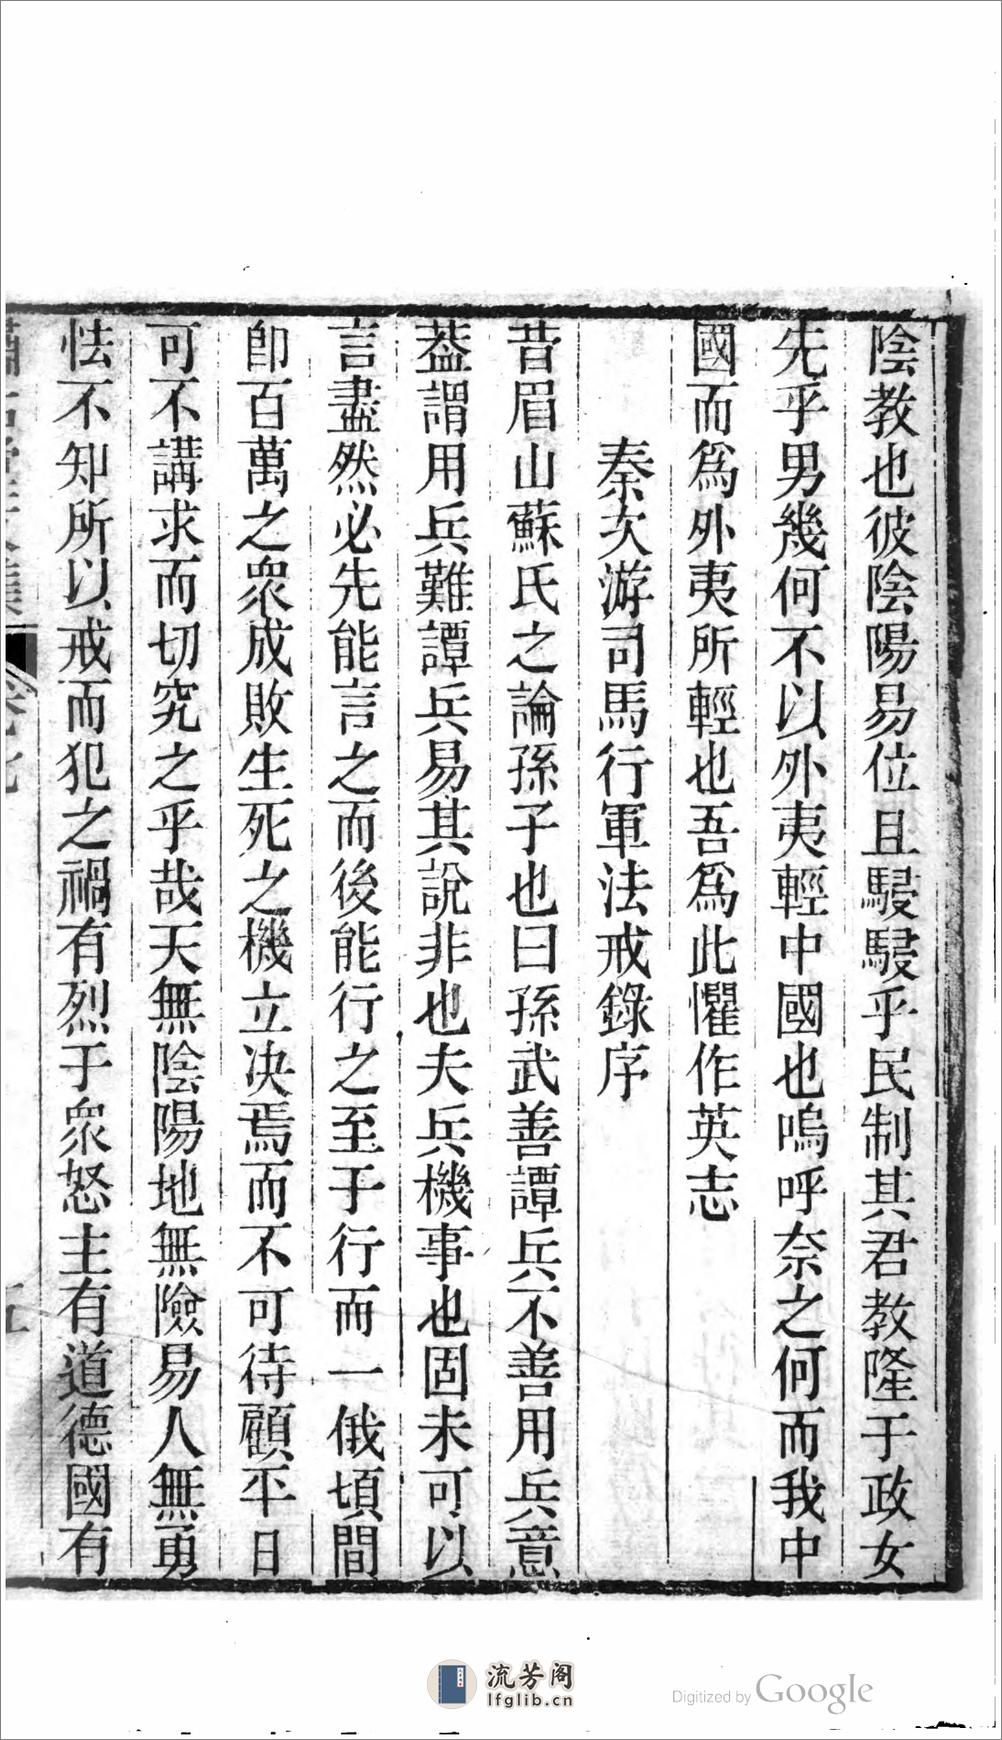 陰教也彼陰陽易位且駸駸乎民制其君教隆于政女
先乎男幾何不以外夷輕中國也嗚呼奈之何而我中
國而爲外夷所輕也吾爲此懼作英志
秦次游司馬行軍法戒錄序
昔眉山蘇氏之論孫子也曰孫武善譚兵不善用兵意
葢謂用兵難譚兵易其說非也夫兵機事也固未可以
言盡然必先能言之而後能行之至于行而一俄頃間
卽百萬之眾成敗生死之機立决焉而不可待顧平日
可不講求而切究之乎哉天無陰陽地無險易人無勇
怯不知所以戒而犯之禍有烈于眾怒主有道德國有
流芳阁
lfglib.cn
Digitized by Google